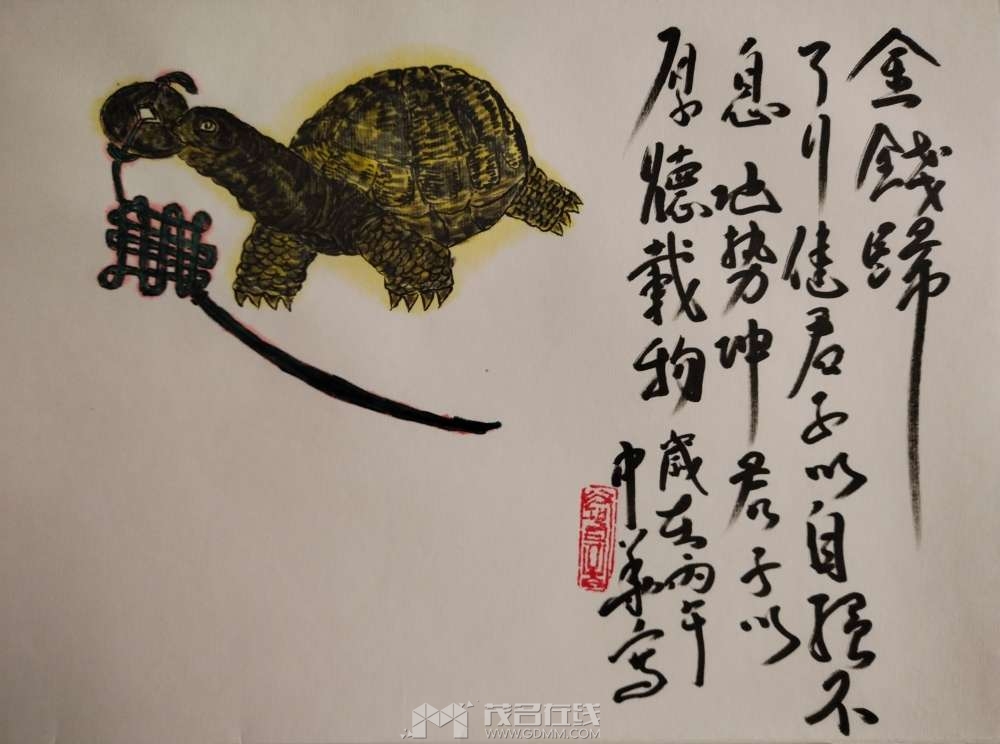 金錢歸
天行健君子以自强不
息地势坤君子以
厚德載物歲在丙午
中華寫
茂名在线
WWW.GDMM.COM